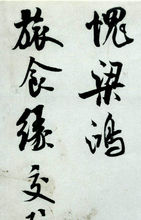 愧梁鴻
旅食緣交